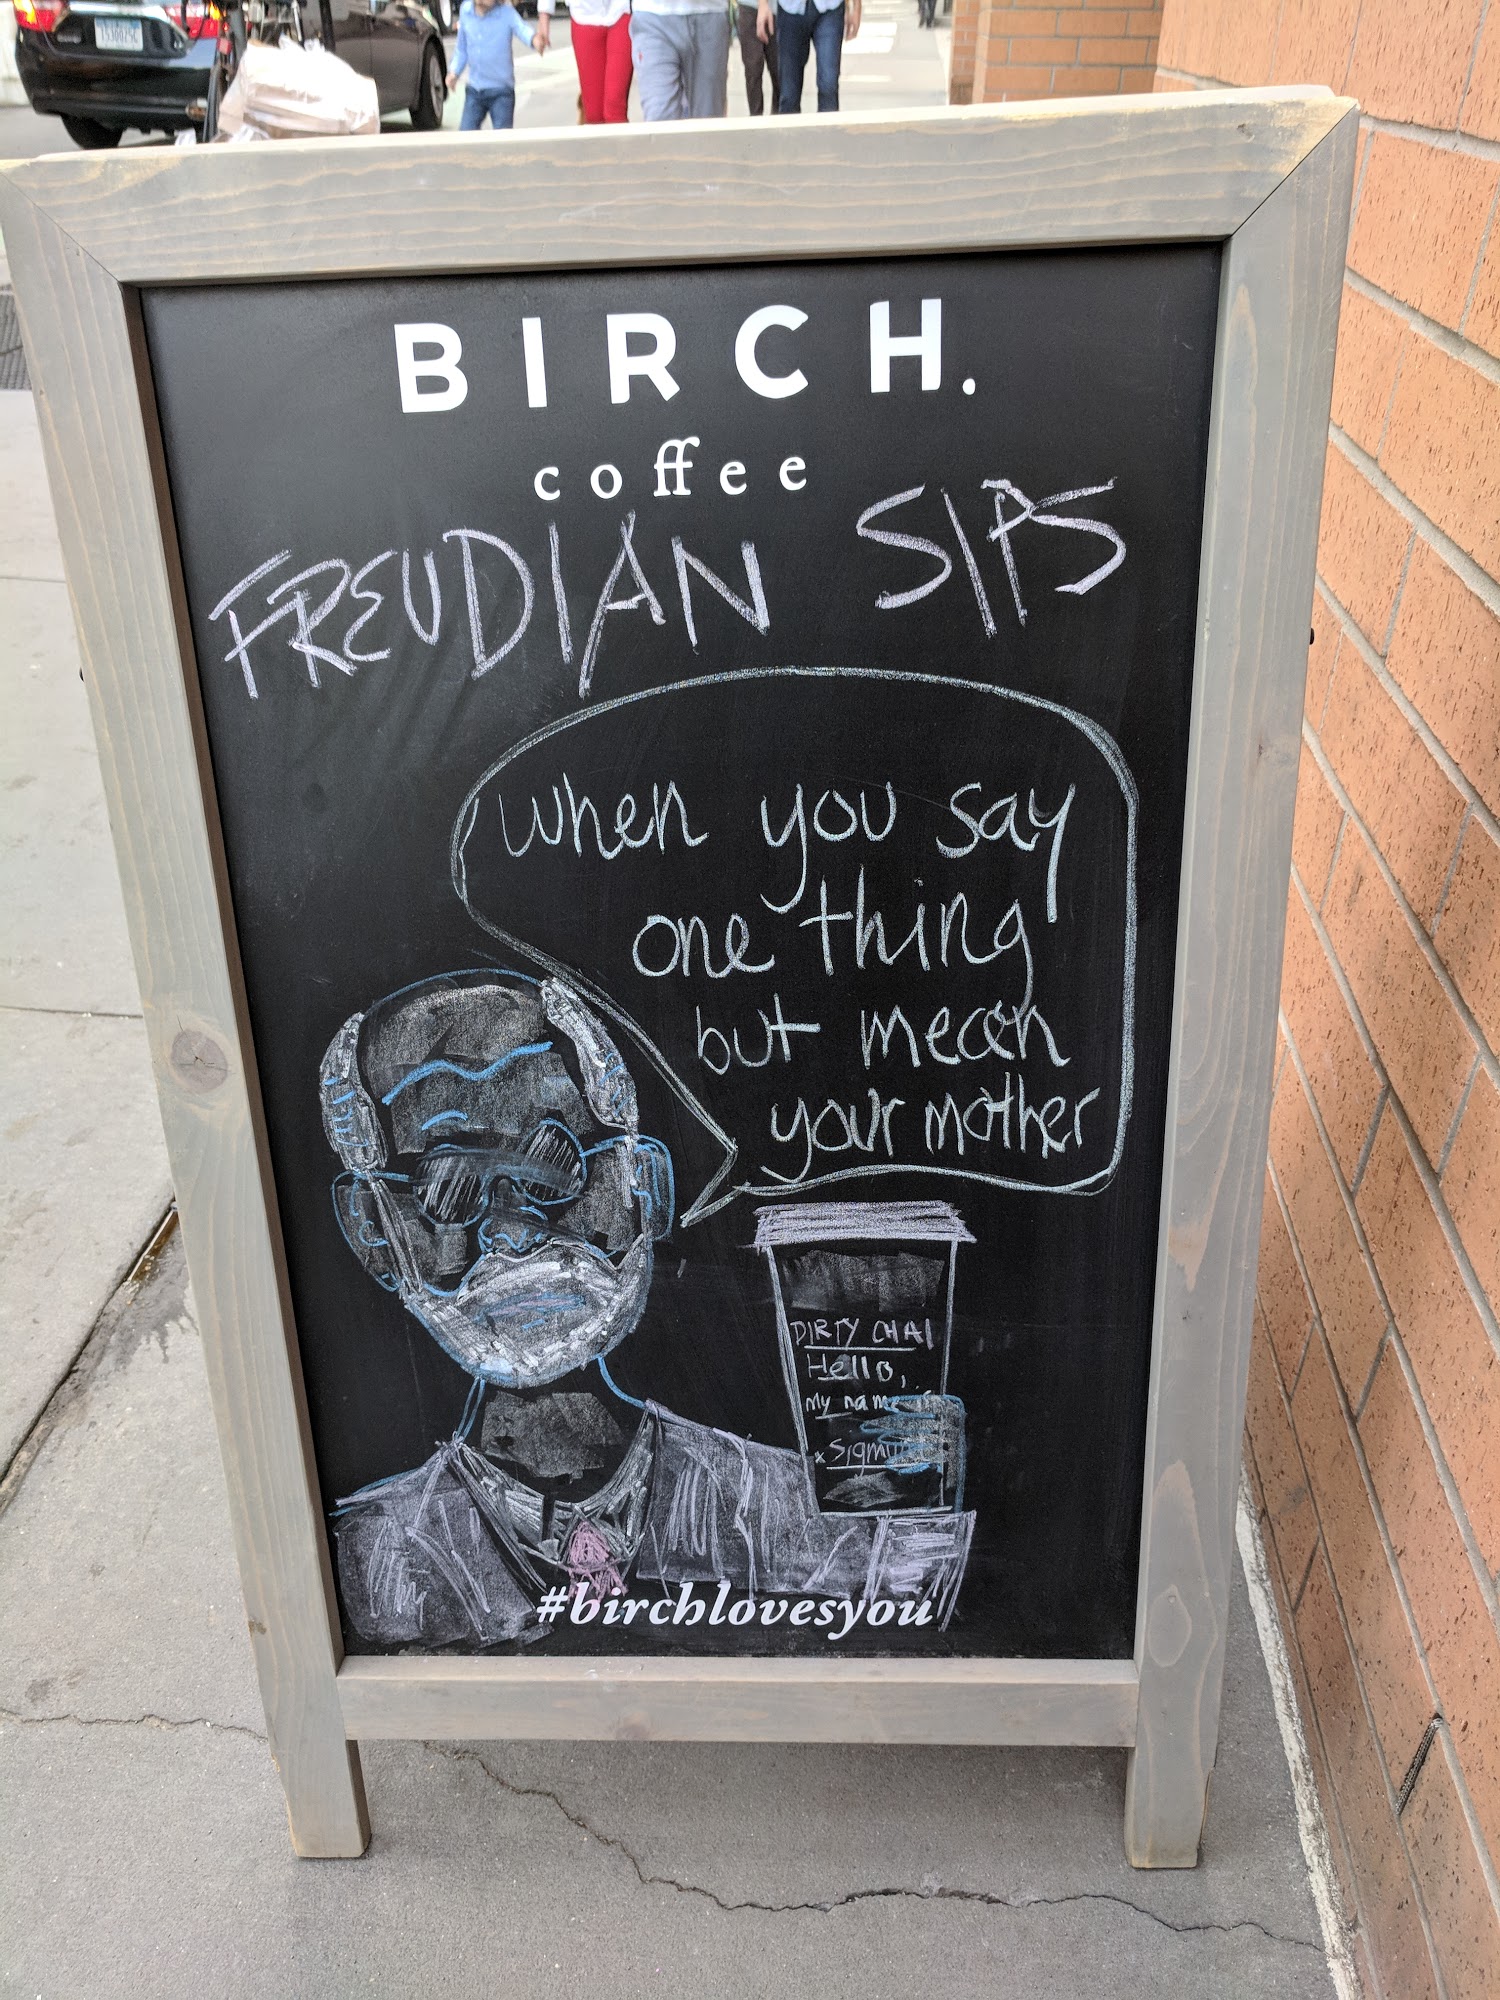 BIRCH.
coffee
FREUDIAN SIPS
when you say
one thing
but mean
your mother
DIRTY CHAI
Hello,
my name is
x Sigmu
#birchlovesyou